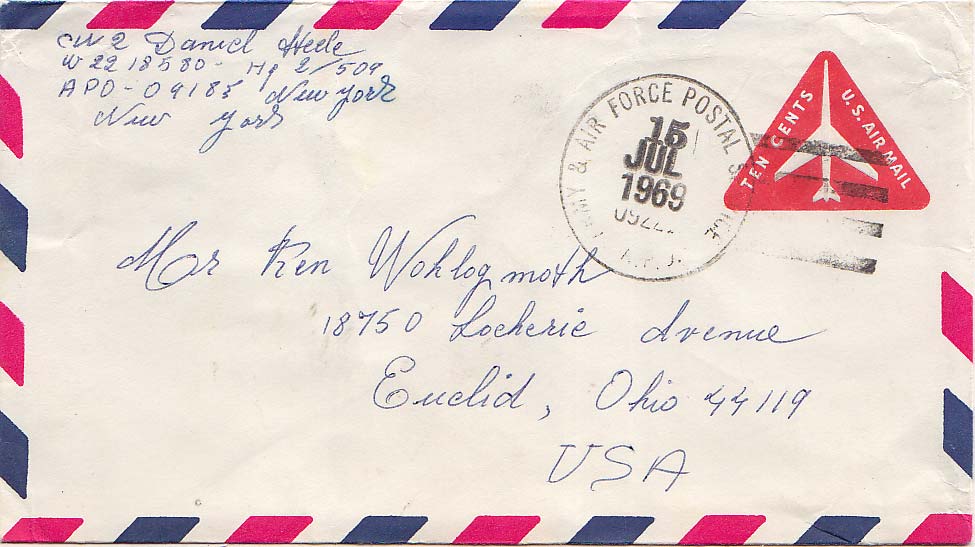 CW2 Daniel Steele
W2218580 - Hq 2/509
APO - 09185 New York
New York
ARMY & AIR FORCE POSTAL
15
JUL
1969
A.P.O.
TEN CENTS
U.S. AIR MAIL
Mr Ken Wohlgmoth
18750 Locherie Avenue
Euclid, Ohio 44119
USA